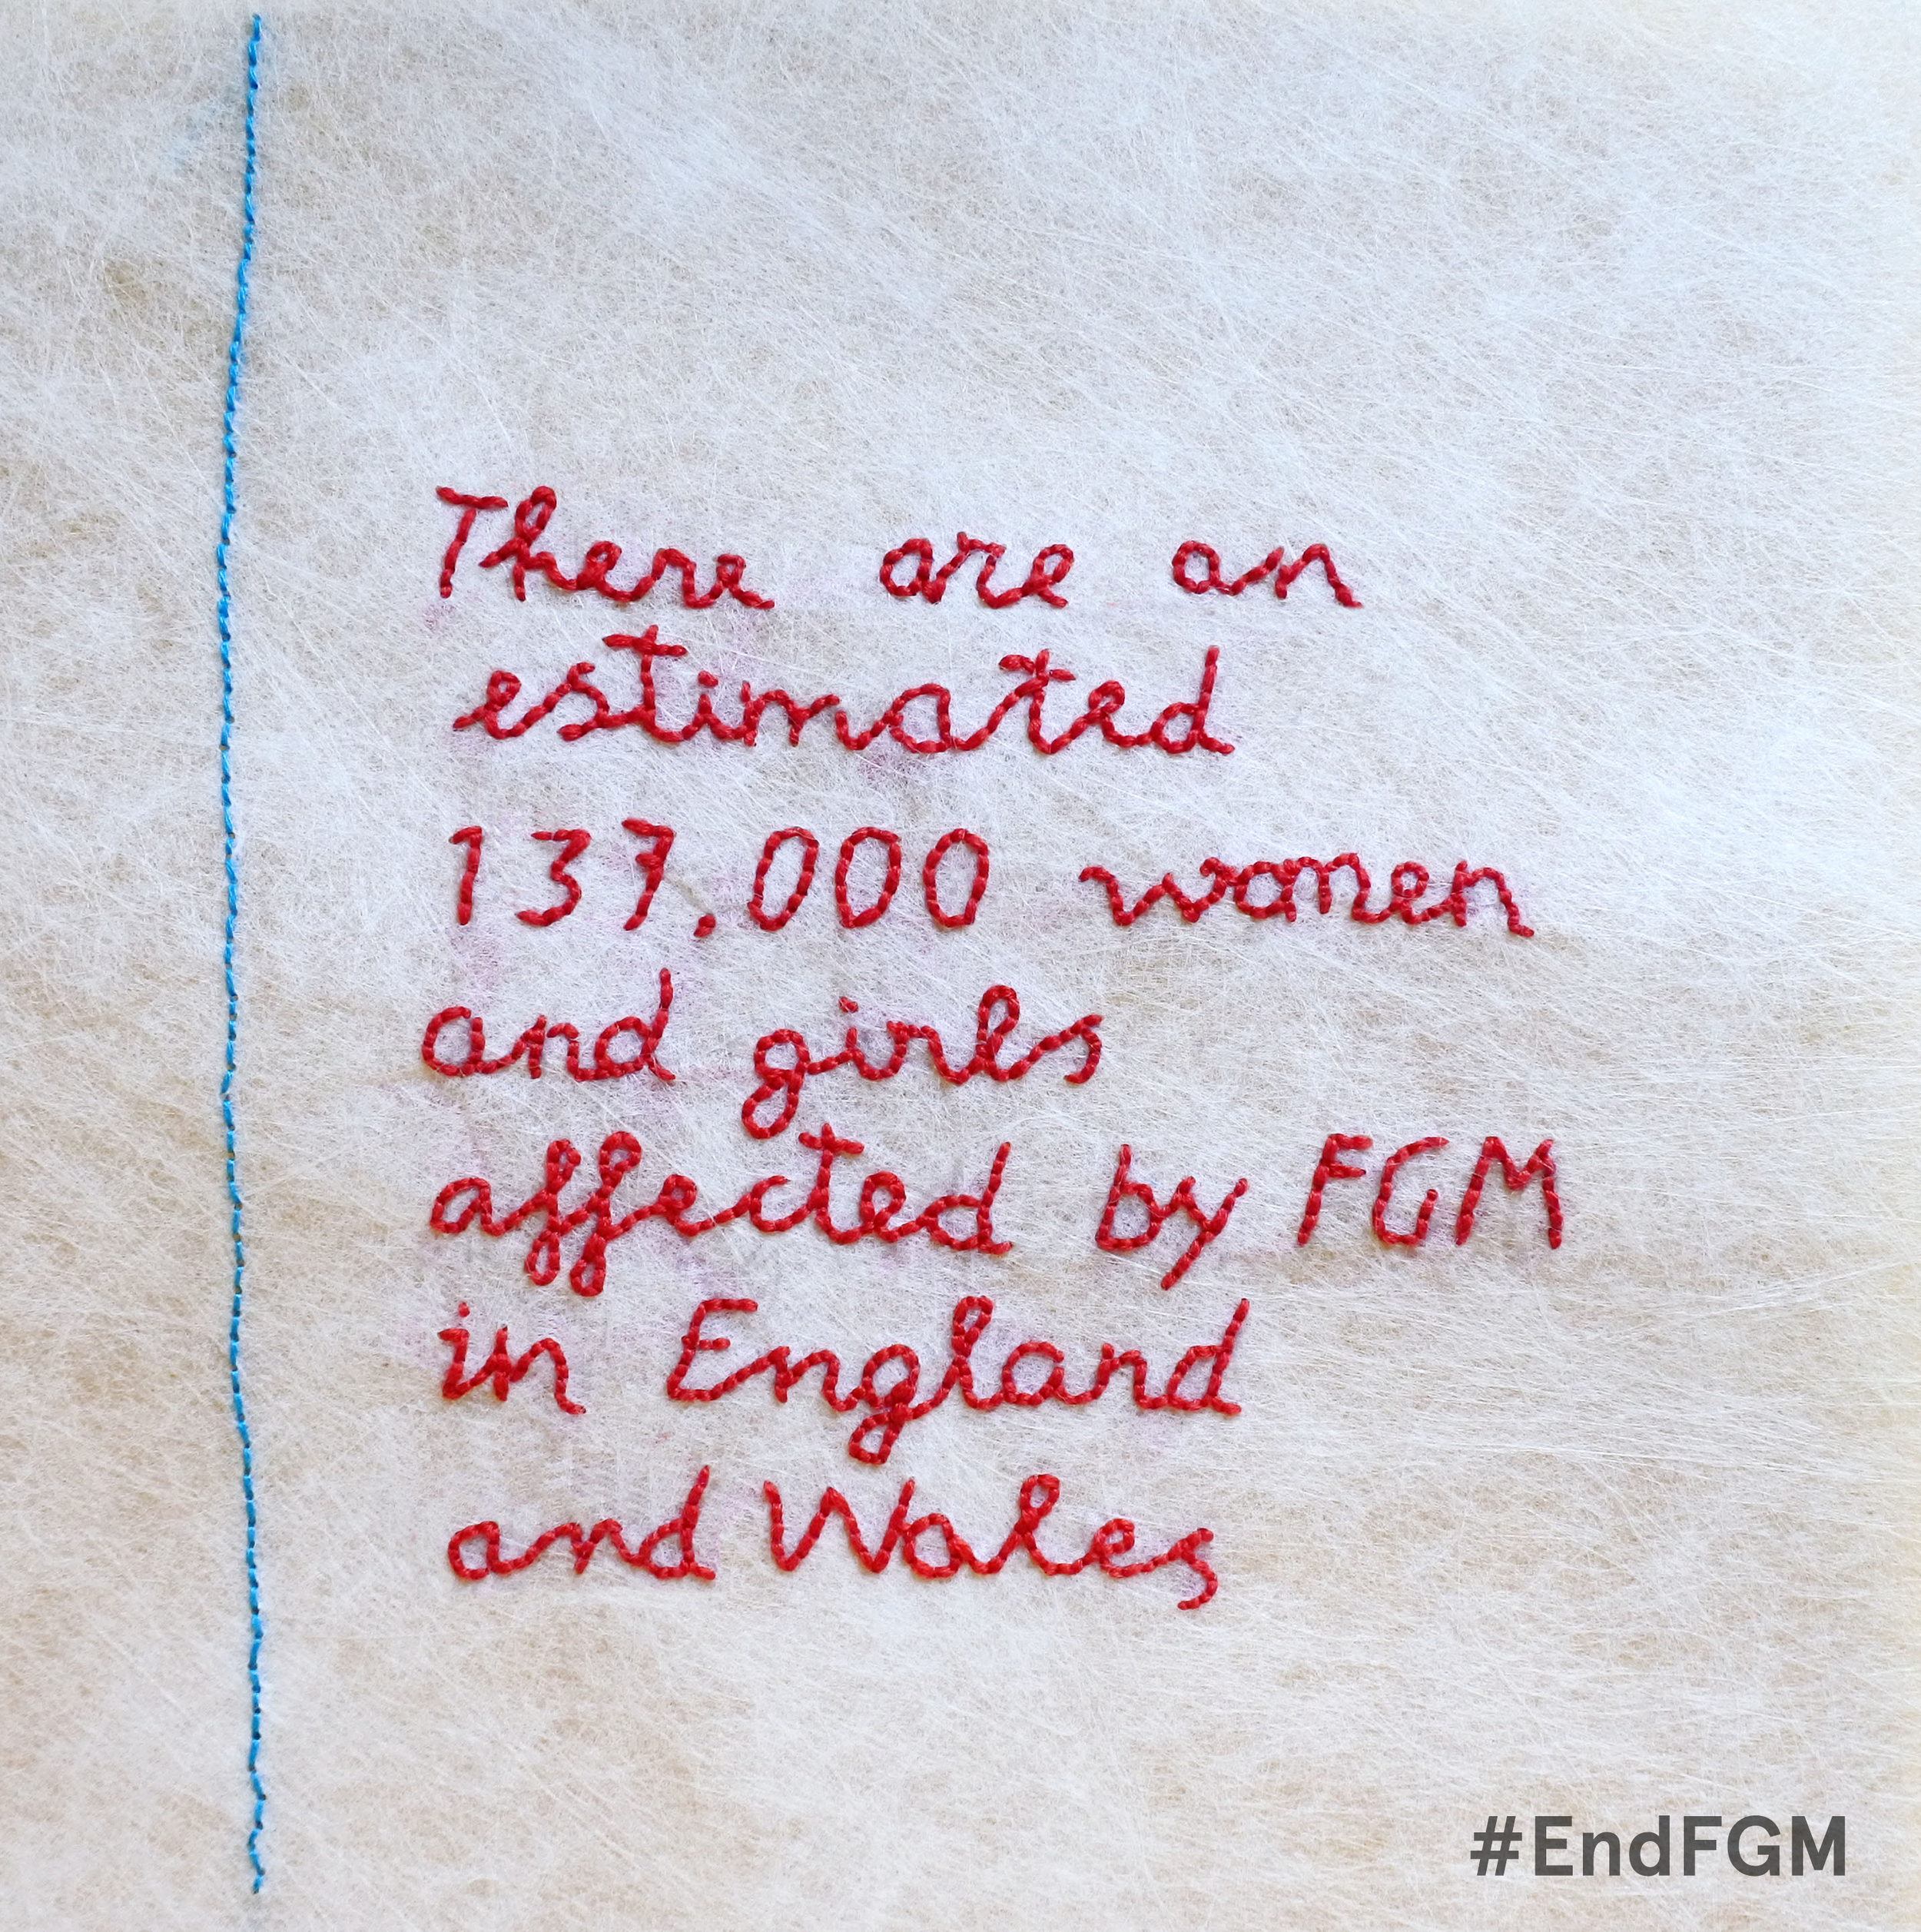 There are an
estimated
137,000 women
and girls
affected by FGM
in England
and Wales
#EndFGM